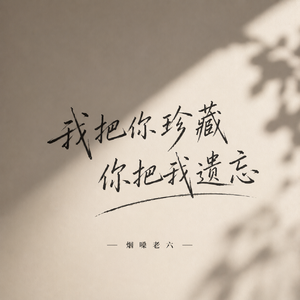 我把你珍藏
你把我遗忘
— 烟嗓老六 —